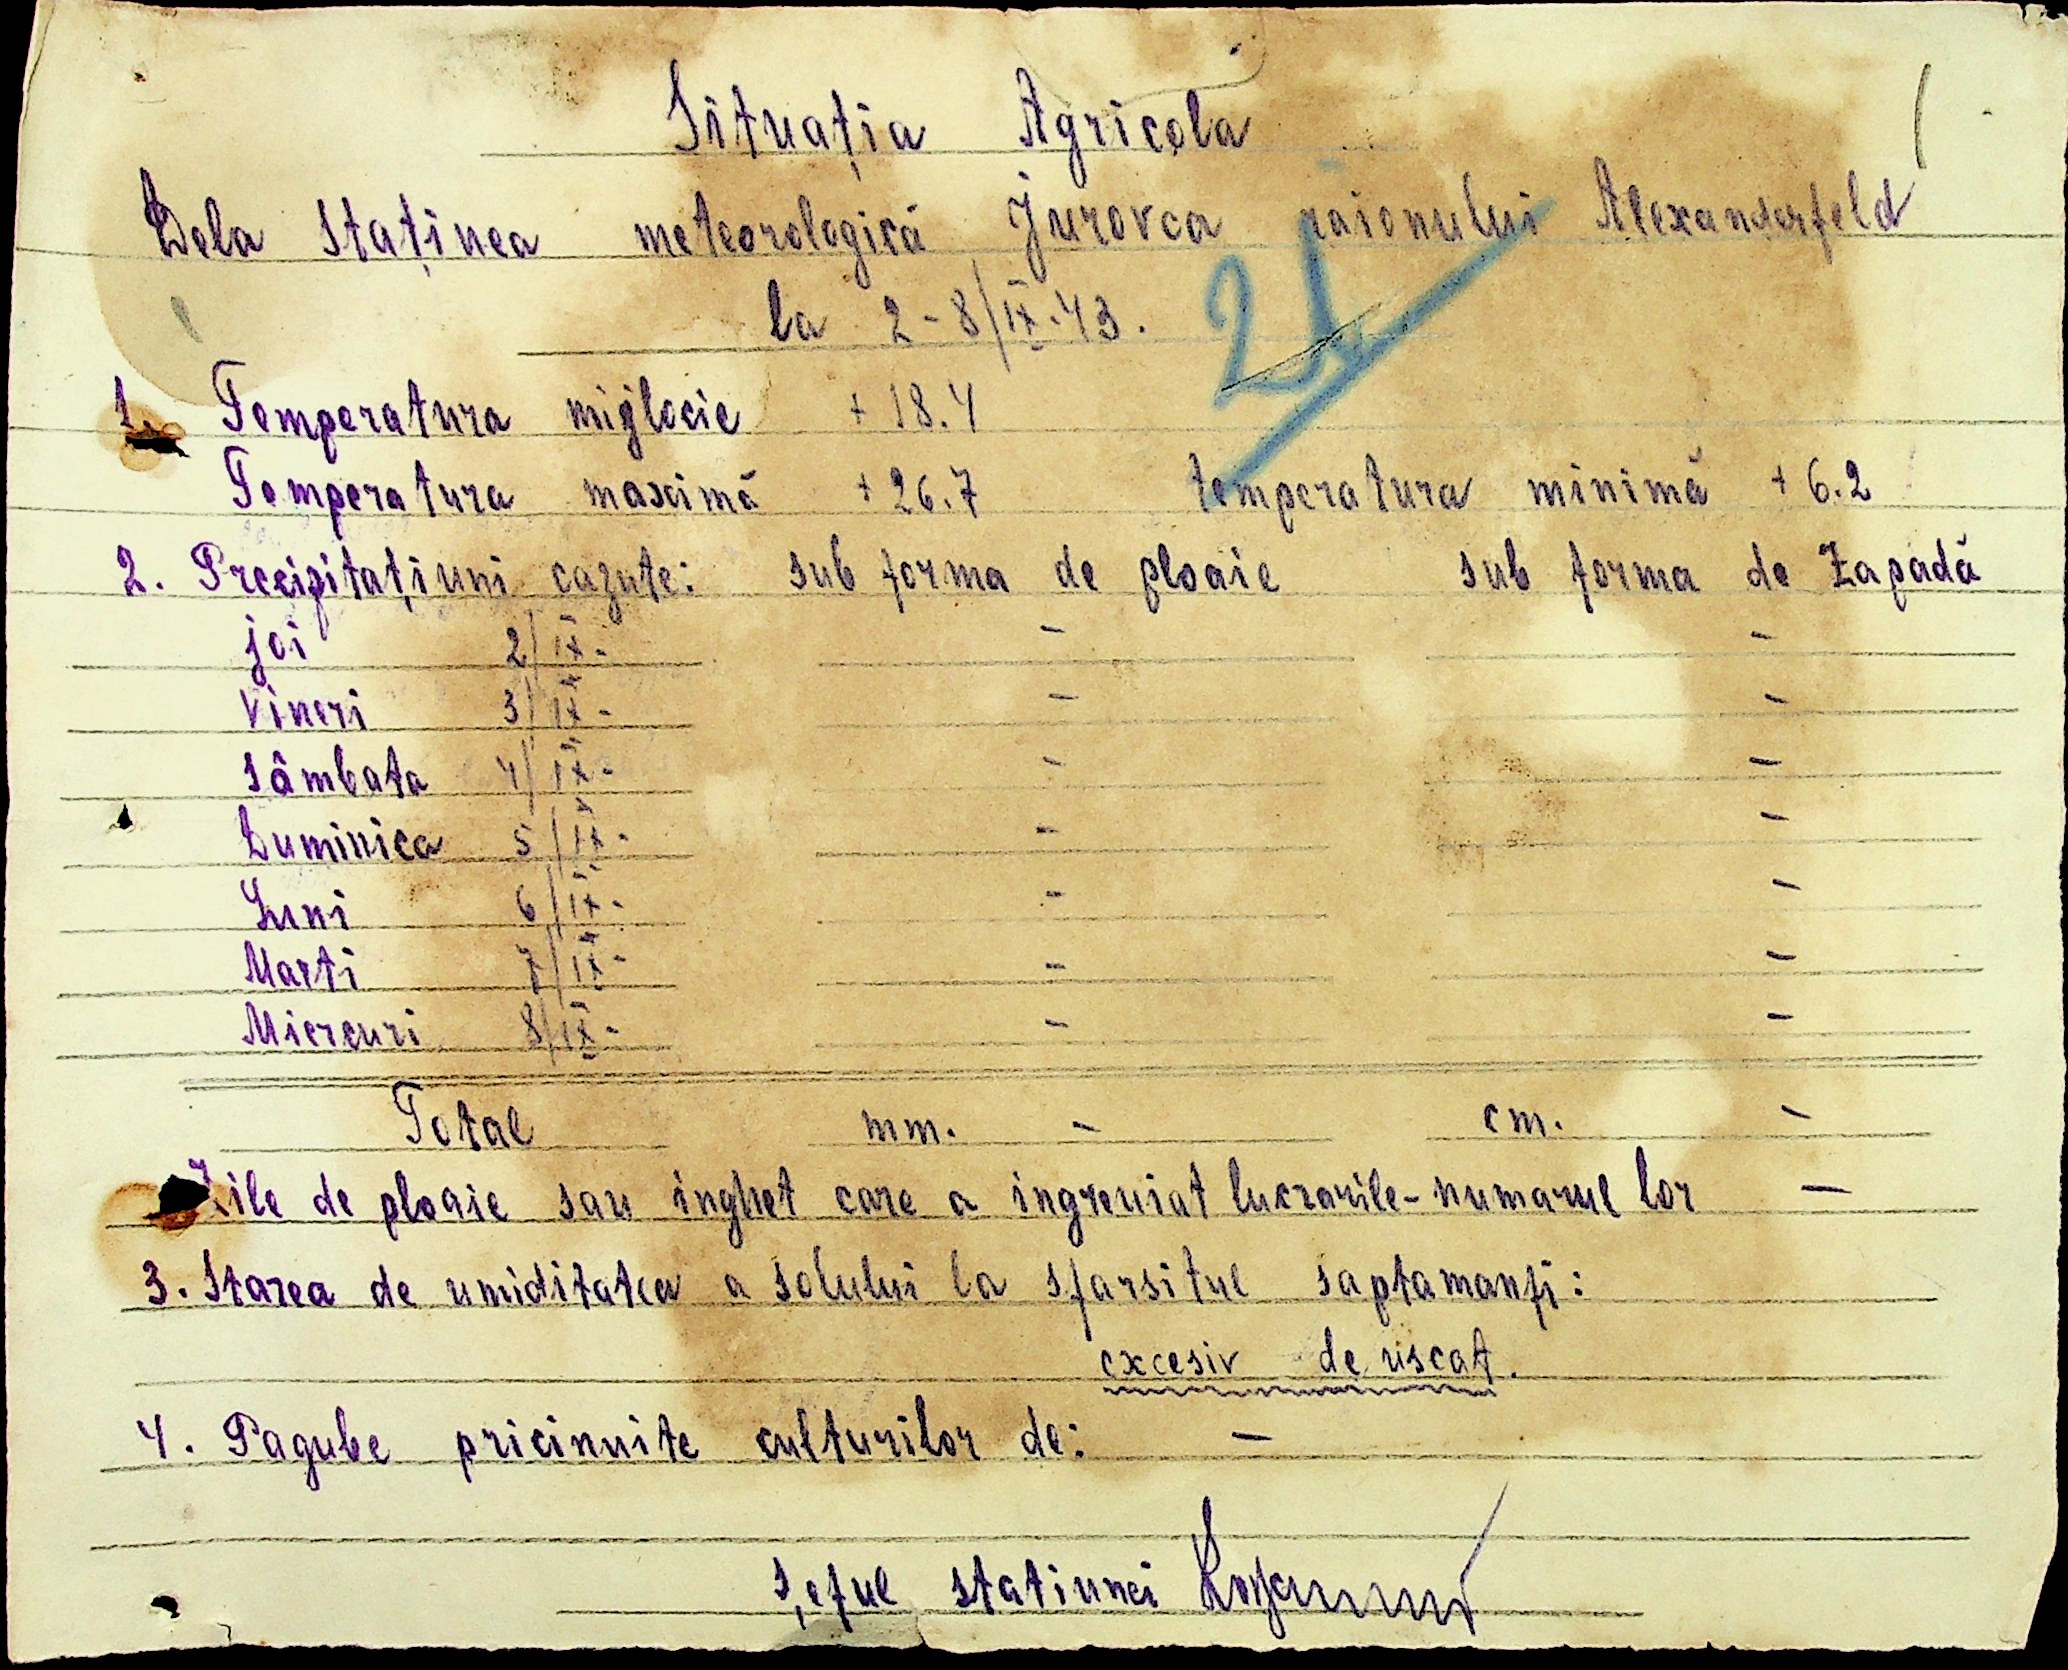 Situația Agricola
Dela Staținea meteorologică Jurovca raionului Alexanderfeld
la 2-8/IX-43.
21
1. Temperatura mijlocie + 18.4
Temperatura maximă + 26.7 temperatura minimă + 6.2
2. Precipitațiuni cazute: sub forma de ploaie sub forma de Zapadă
joi 2/IX- - -
Vineri 3/IX- - -
Sâmbata 4/IX- - -
Duminica 5/IX- - -
Luni 6/IX- - -
Marti 7/IX- - -
Miercuri 8/IX- - -
Total mm. - cm. -
Zile de ploaie sau inghet care a ingreuiat lucrarile-numarul lor —
3. Starea de umiditatea a solului la sfarsitul saptamanii:
excesiv de uscat.
4. Pagube pricinuite culturilor de: —
Șeful statiunei